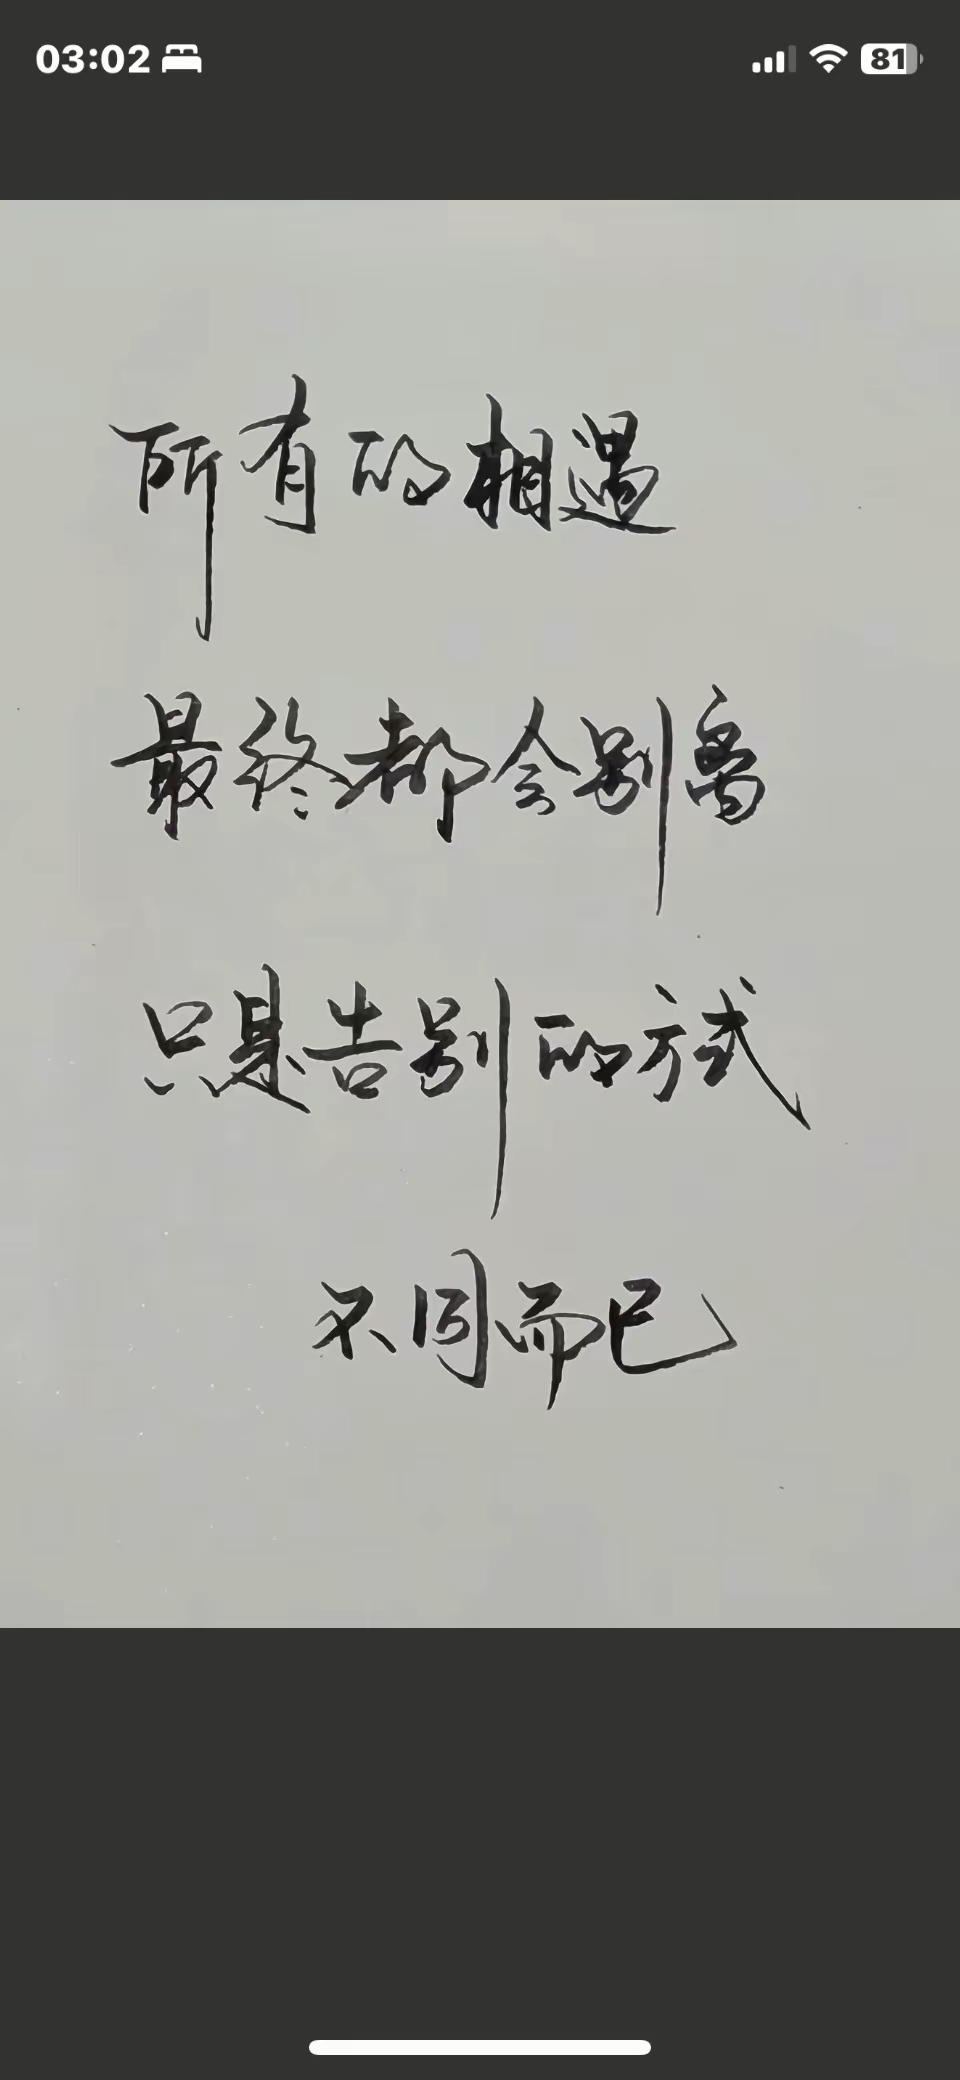 03:02
81
所有的相遇
最终都会别离
只是告别的方式
不同而已